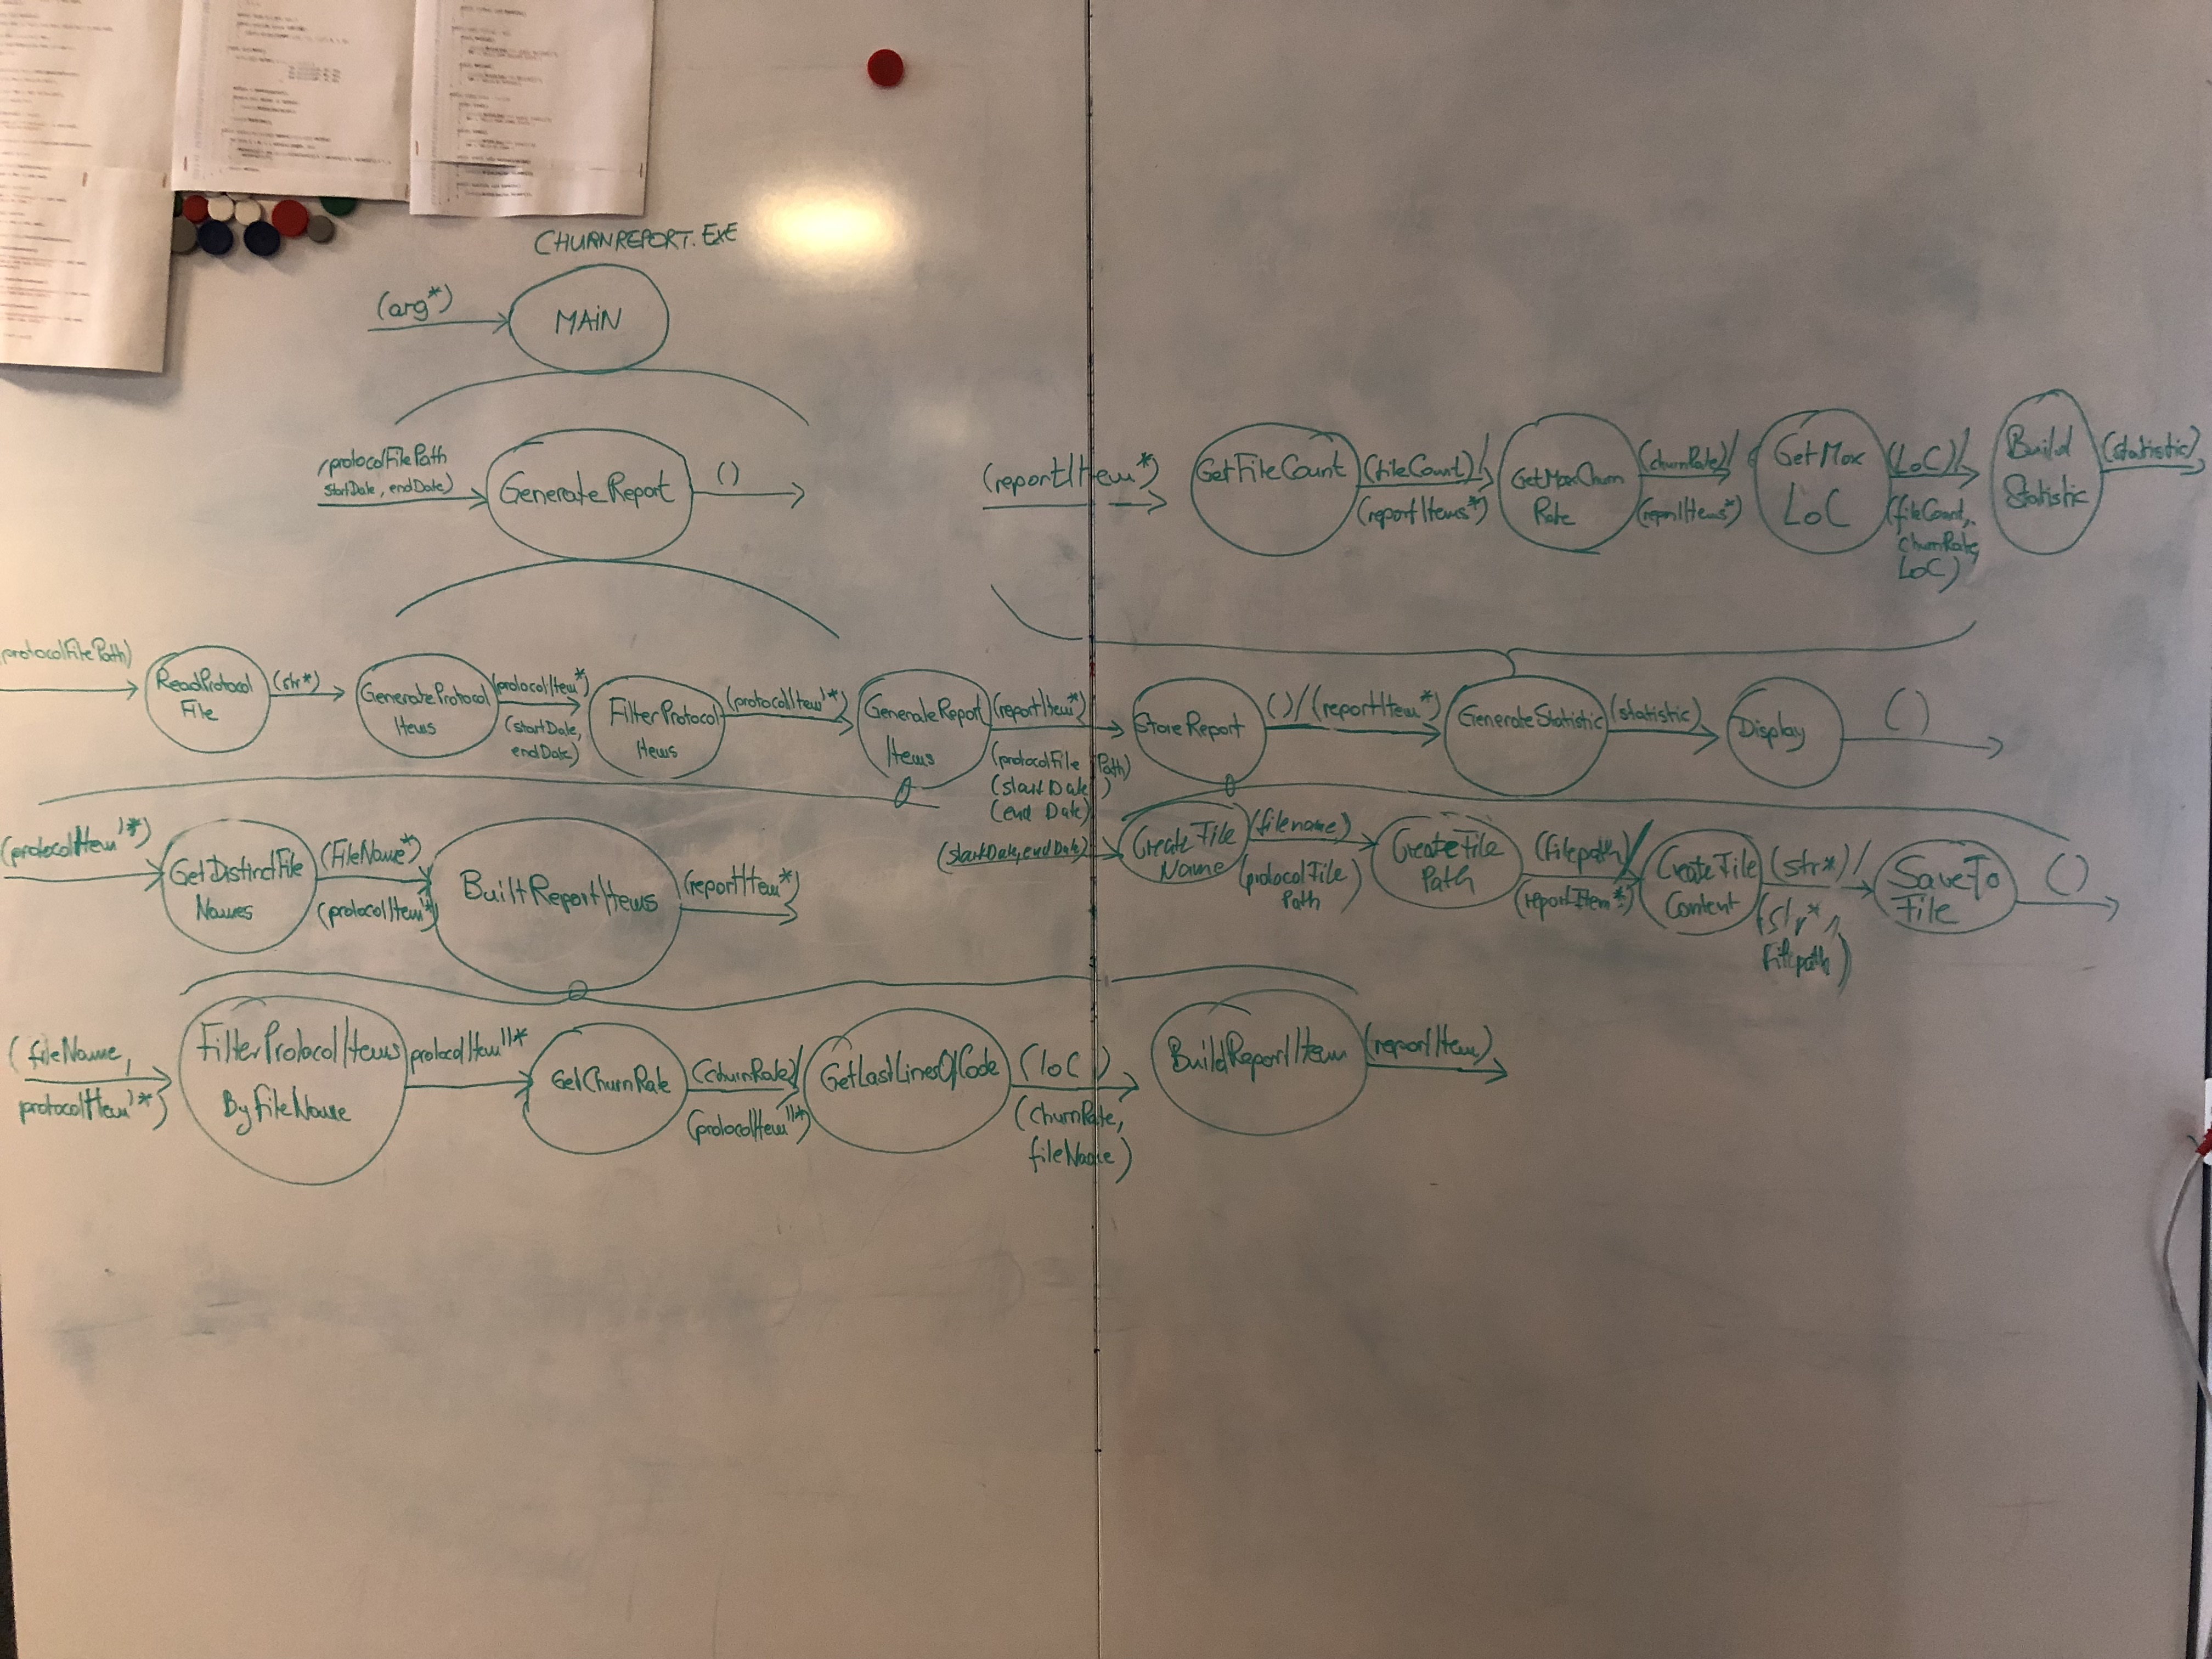 CHURNREPORT.EXE
(arg*)
MAIN
(protocolFilePath
startDate, endDate)
GenerateReport
()
(reportItem*)
GetFileCount
(fileCount)/
(reportItems*)
GetMaxChurn
Rate
(churnRate)/
(reportItems*)
GetMax
LoC
(LoC)/
(fileCount,
churnRate,
LoC)
Build
Statistic
(statistic)
protocolFilePath)
ReadProtocol
File
(str*)
GenerateProtocol
Items
(protocolItem*)
(startDate,
endDate)
FilterProtocol
Items
(protocolItem'*)
GenerateReport
Items
(reportItem*)
(protocolFile Path)
(startDate)
(end Date)
StoreReport
()/(reportItem*)
GenerateStatistic
(statistic)
Display
()
(protocolItem'*)
GetDistinctFile
Names
(FileName*)
(protocolItem'*)
BuiltReportItems
(reportItem*)
(startDate, endDate)
CreateFile
Name
(filename)
(protocolFile
Path)
CreateFile
Path
(filepath)/
(reportItem*)
CreateFile
Content
(str*)/
(str*,
filepath)
SaveTo
File
()
(fileName,
protocolItem'*)
FilterProtocolItems
ByFileName
protocolItem''*
GetChurnRate
(churnRate)/
(protocolItem''*)
GetLastLinesOfCode
(loC)
(churnRate,
fileName)
BuildReportItem
(reportItem)